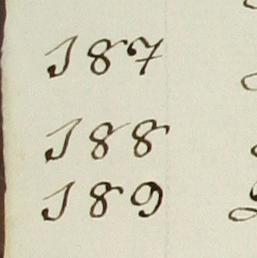 187
188
189